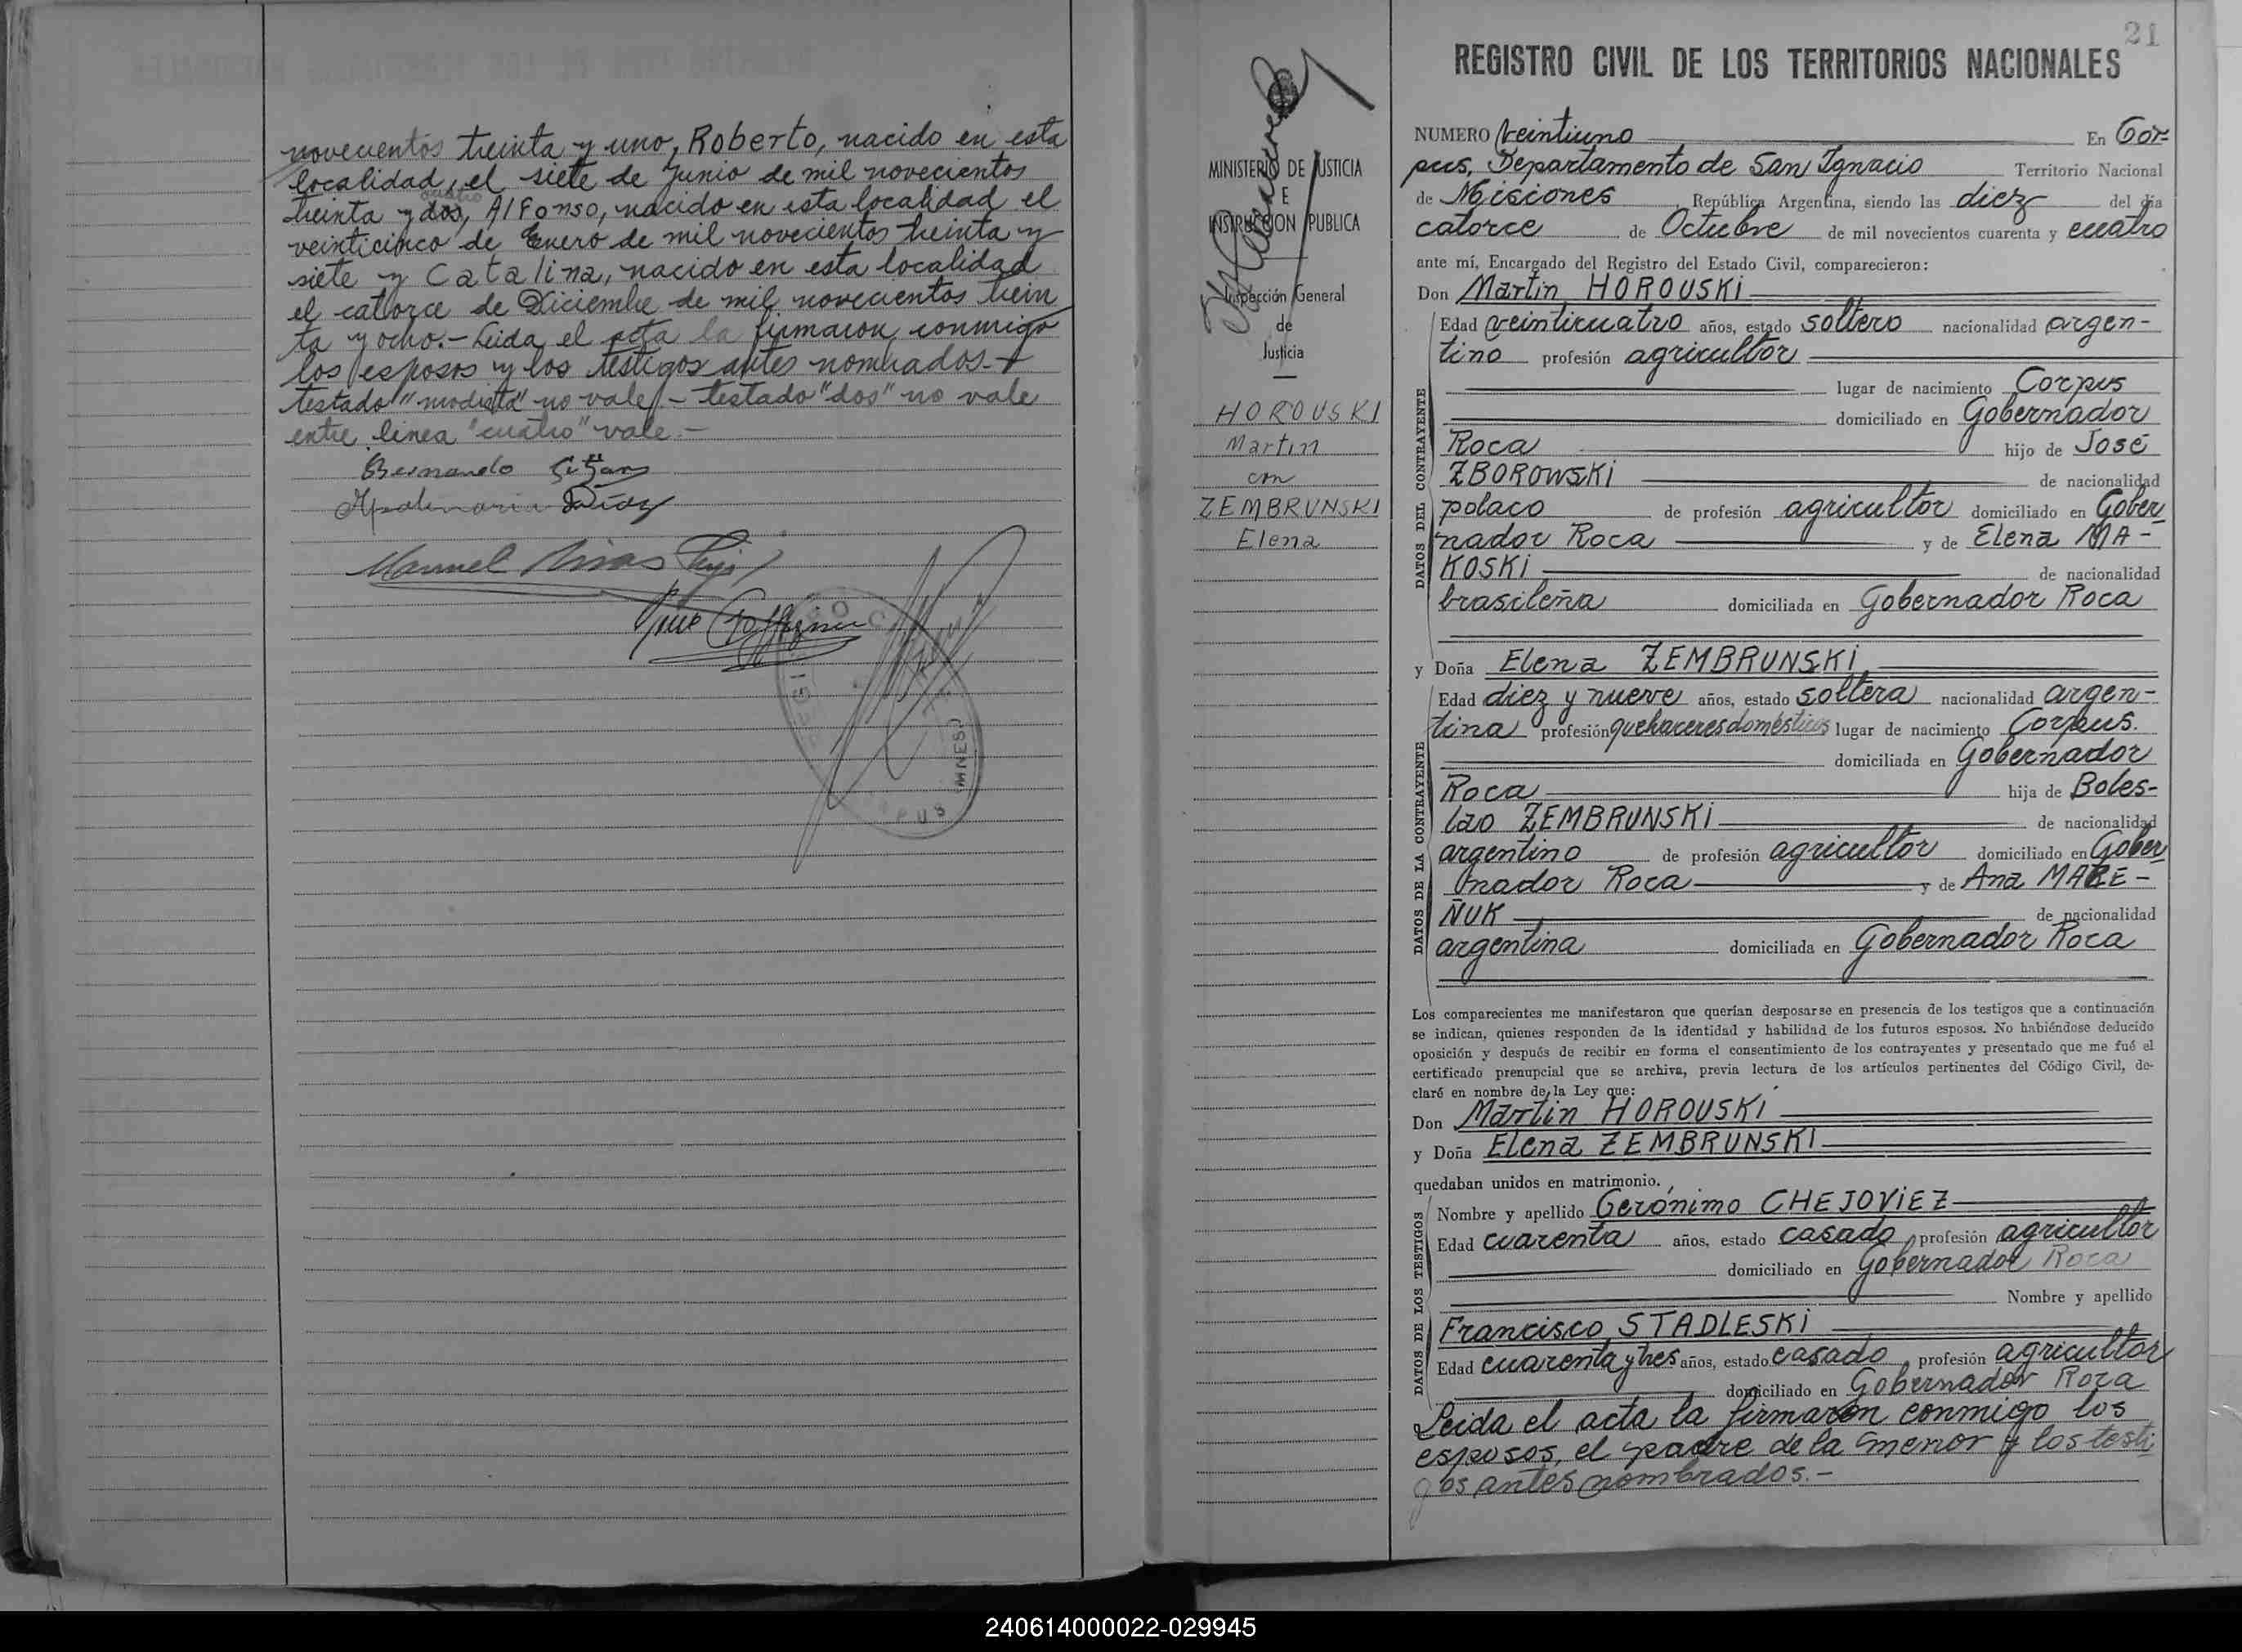 novecientos treinta y uno, Roberto, nacido en esta
localidad, el siete de Junio de mil novecientos
cuatro
treinta y dos, Alfonso, nacido en esta localidad el
veinticinco de Enero de mil novecientos treinta y
siete y Catalina, nacido en esta localidad
el catorce de Diciembre de mil novecientos trein
ta y ocho.- Leida el acta la firmaron conmigo
los esposos y los testigos antes nombrados.-
testado "modista" no vale - testado "dos" no vale
entre linea "cuatro" vale.-
Bernardo
Apolinaria Diaz
Manuel Rivas
21
REGISTRO CIVIL DE LOS TERRITORIOS NACIONALES
MINISTERIO DE JUSTICIA
E
INSTRUCCION PUBLICA
Inspección General
de
Justicia
HOROUSKI
Martin
con
ZEMBRUNSKI
Elena
NUMERO Veintiuno En Cor-
pus, Departamento de San Ignacio Territorio Nacional
de Misiones República Argentina, siendo las diez del día
catorce de Octubre de mil novecientos cuarenta y cuatro
ante mí, Encargado del Registro del Estado Civil, comparecieron:
Don Martin HOROUSKI
DATOS DEL CONTRAYENTE
Edad veinticuatro años, estado soltero nacionalidad argen-
tino profesión agricultor
lugar de nacimiento Corpus
domiciliado en Gobernador
Roca hijo de José
ZBOROWSKI de nacionalidad
polaco de profesión agricultor domiciliado en Gober
nador Roca y de Elena MA-
KOSKI de nacionalidad
brasileña domiciliada en Gobernador Roca
y Doña Elena ZEMBRUNSKI
DATOS DE LA CONTRAYENTE
Edad diez y nueve años, estado soltera nacionalidad argen-
tina profesión quehaceres domésticos lugar de nacimiento Corpus.
domiciliada en Gobernador
Roca hija de Boles-
lao ZEMBRUNSKI de nacionalidad
argentino de profesión agricultor domiciliado en Gober
nador Roca y de Ana MAZE-
ÑUK de nacionalidad
argentina domiciliada en Gobernador Roca
Los comparecientes me manifestaron que querían desposarse en presencia de los testigos que a continuación
se indican, quienes responden de la identidad y habilidad de los futuros esposos. No habiéndose deducido
oposición y después de recibir en forma el consentimiento de los contrayentes y presentado que me fué el
certificado prenupcial que se archiva, previa lectura de los artículos pertinentes del Código Civil, de-
claré en nombre de la Ley que:
Don Martin HOROUSKI
y Doña Elena ZEMBRUNSKI
quedaban unidos en matrimonio.
DATOS DE LOS TESTIGOS
Nombre y apellido Gerónimo CHEJOVIEZ
Edad cuarenta años, estado casado profesión agricultor
domiciliado en Gobernador Roca
Nombre y apellido
Francisco STADLESKI
Edad cuarenta y tres años, estado casado profesión agricultor
domiciliado en Gobernador Roca
Leida el acta la firmaron conmigo los
esposos, el padre de la menor y los testi
gos antes nombrados.-
240614000022-029945